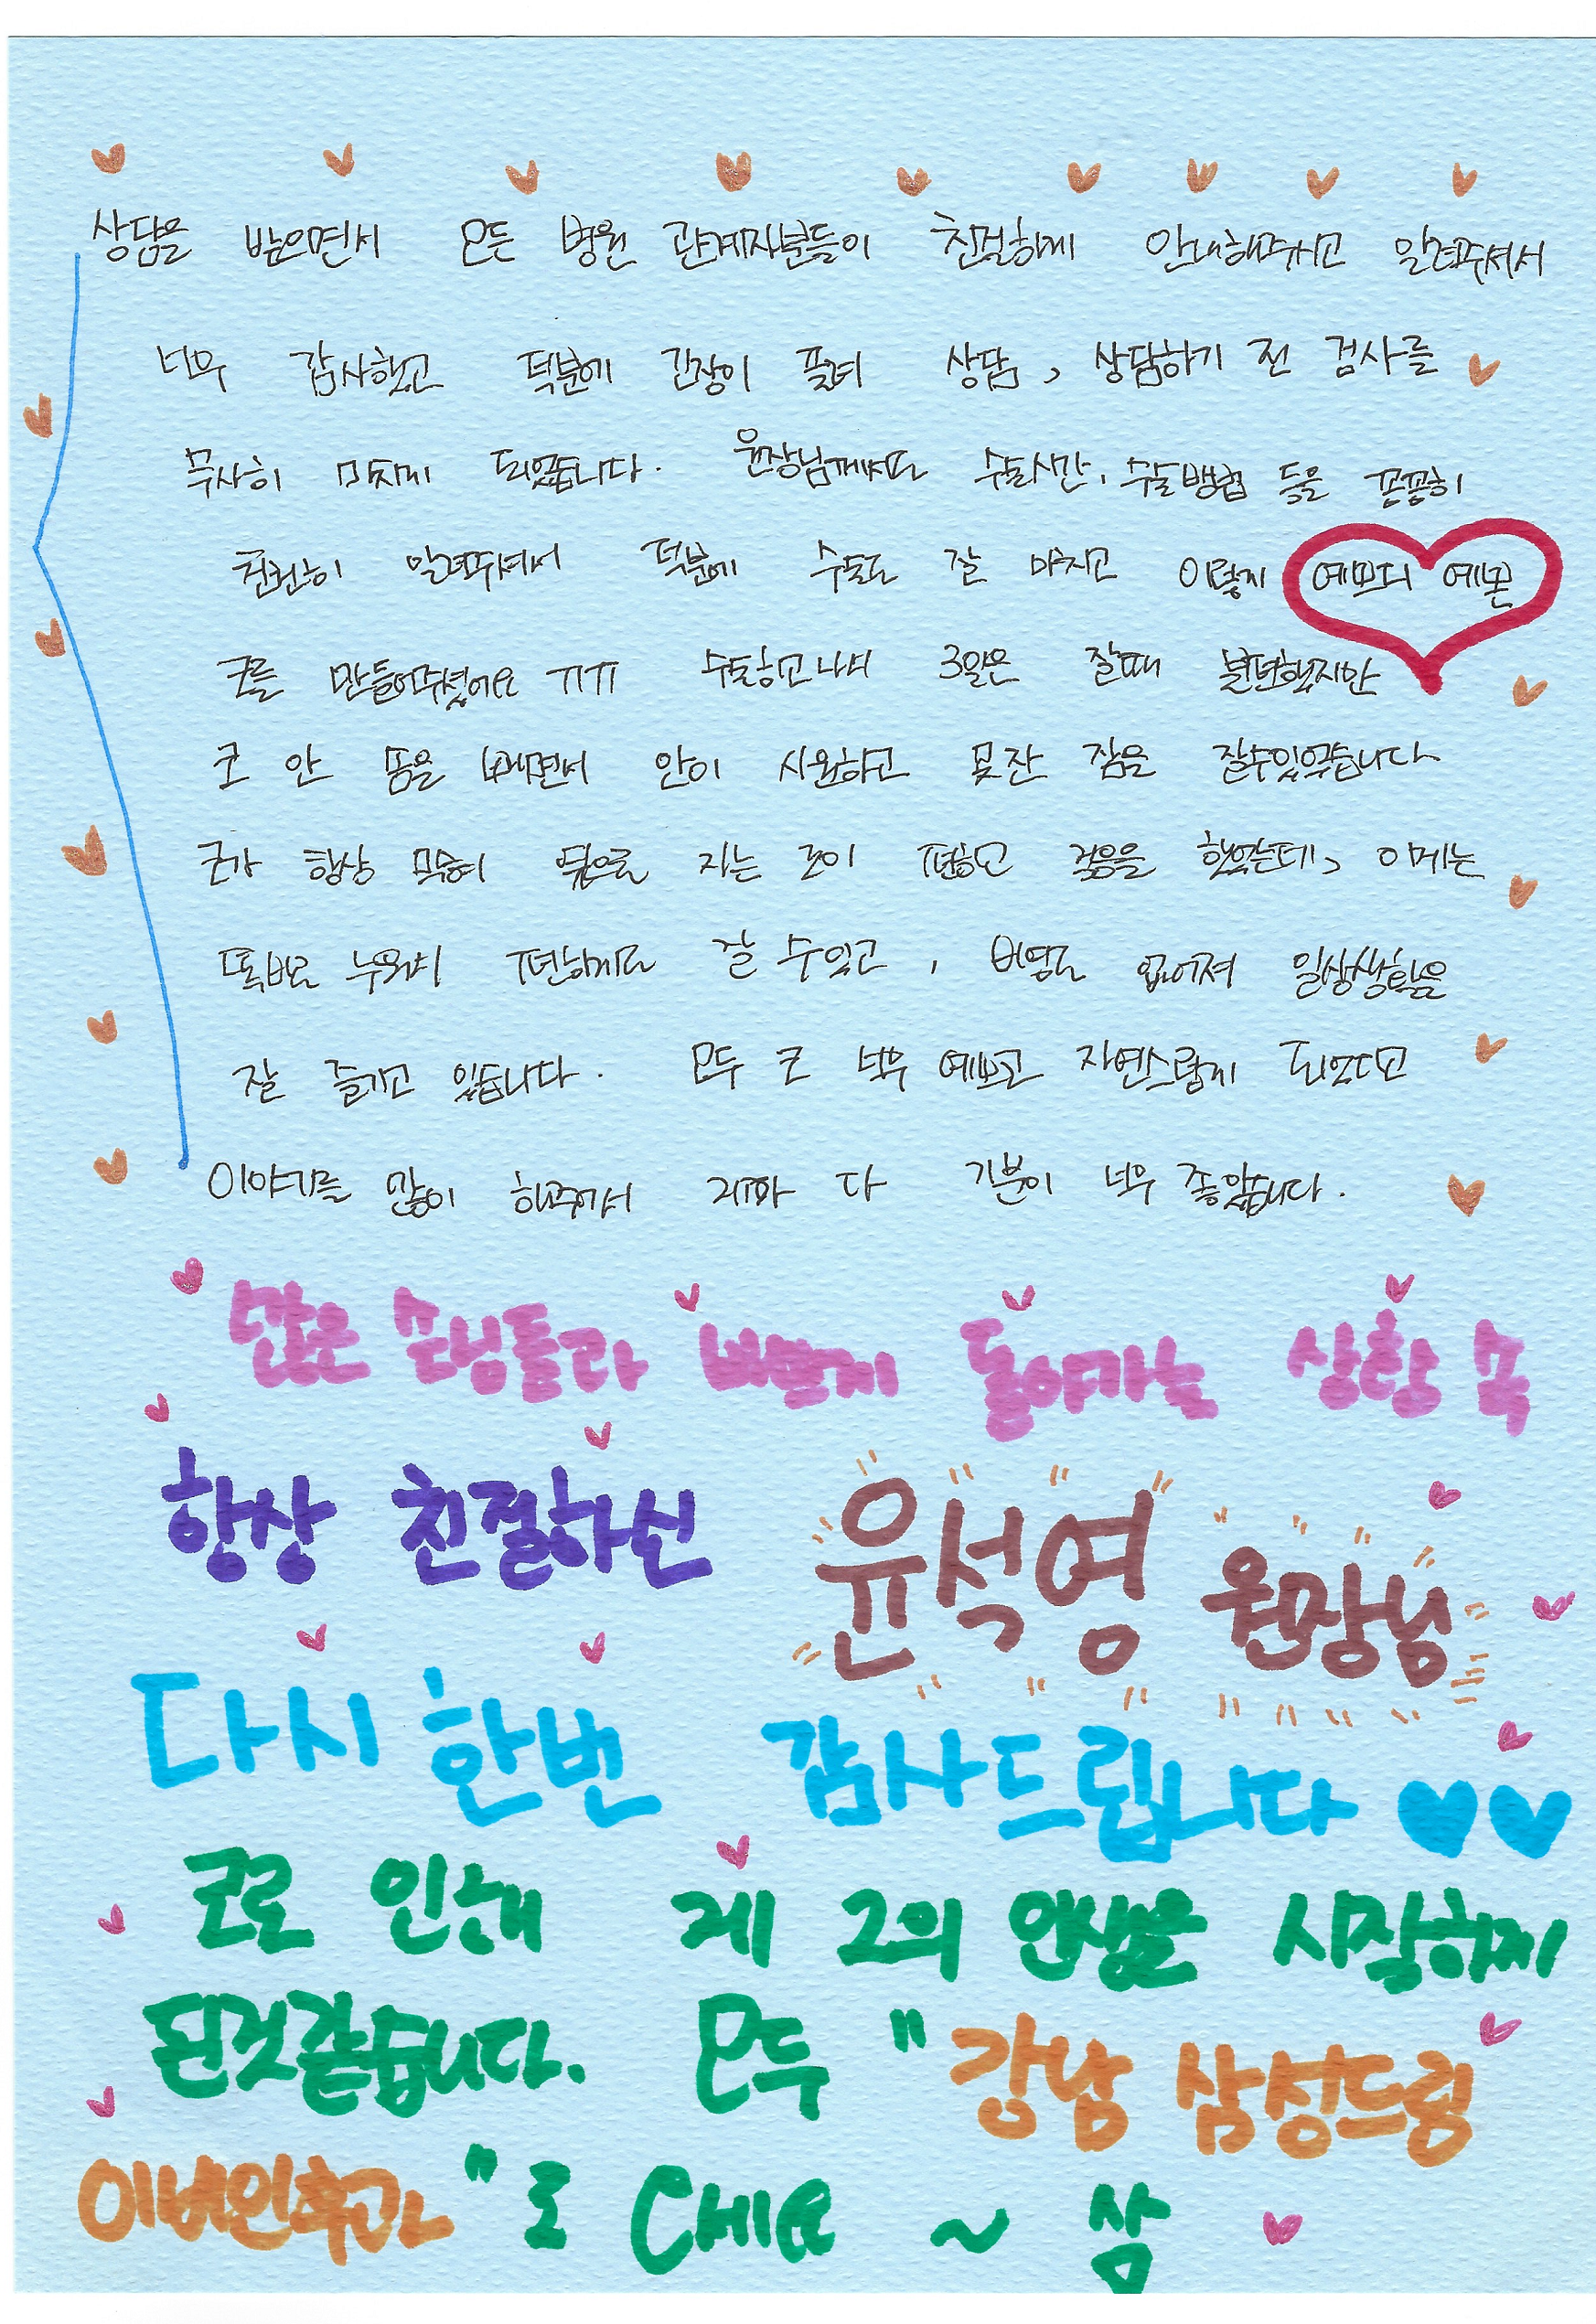 상담을 받으면서 모든 병원 관계자분들이 친절하게 안내해주시고 알려주셔서
너무 감사했고 덕분에 긴장이 풀려 상담, 상담하기 전 검사를
무사히 마치게 되었습니다. 원장님께서도 수술시간, 수술방법 등을 꼼꼼히
천천히 알려주셔서 덕분에 수술도 잘 마치고 이렇게 예쁘디 예쁜
코를 만들어주셨어요 ㅠㅠ 수술하고나서 3일은 잘때 불편했지만
코 안 솜을 빼면서 안이 시원하고 못잔 잠을 잘수있었습니다
코가 항상 막혀 옆으로 자는 것이 편하고 걱정을 했었는데, 이제는
똑바로 누워서 편하게도 잘 수있고, 비염도 없어져 일상생활을
잘 즐기고 있습니다. 모두 코 너무 예쁘고 자연스럽게 되었다고
이야기를 많이 해주어서 제가 다 기분이 너무 좋았습니다.
많은 손님들과 바쁘게 돌아가는 상황 속
항상 친절하신 윤석영 원장님
다시 한번 감사드립니다
코로 인해 제 2의 인생을 시작하게
된것같습니다. 모두 "강남 삼성드림
이비인후과"로 오세요 ~ 삼